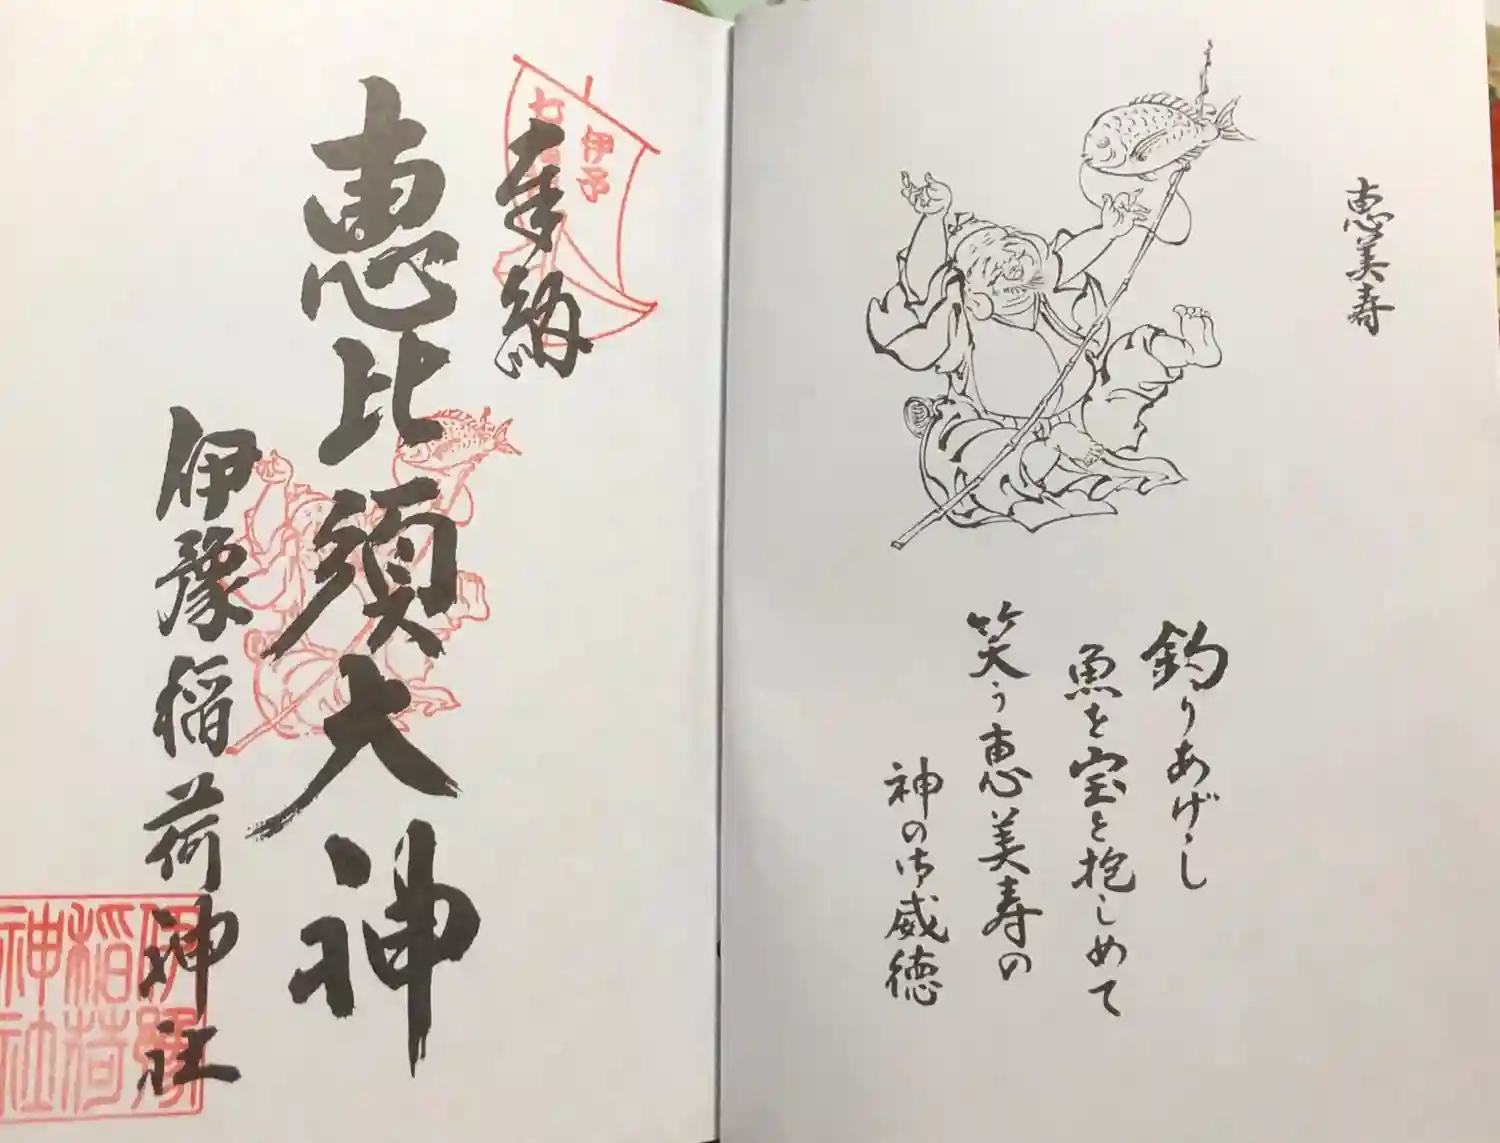 恵美寿
釣りあげし
魚を宝と抱しめて
笑う恵美寿の
神の御威徳
奉納
伊予
七福神
恵比須大神
伊豫稲荷神社
伊豫
稲荷
神社